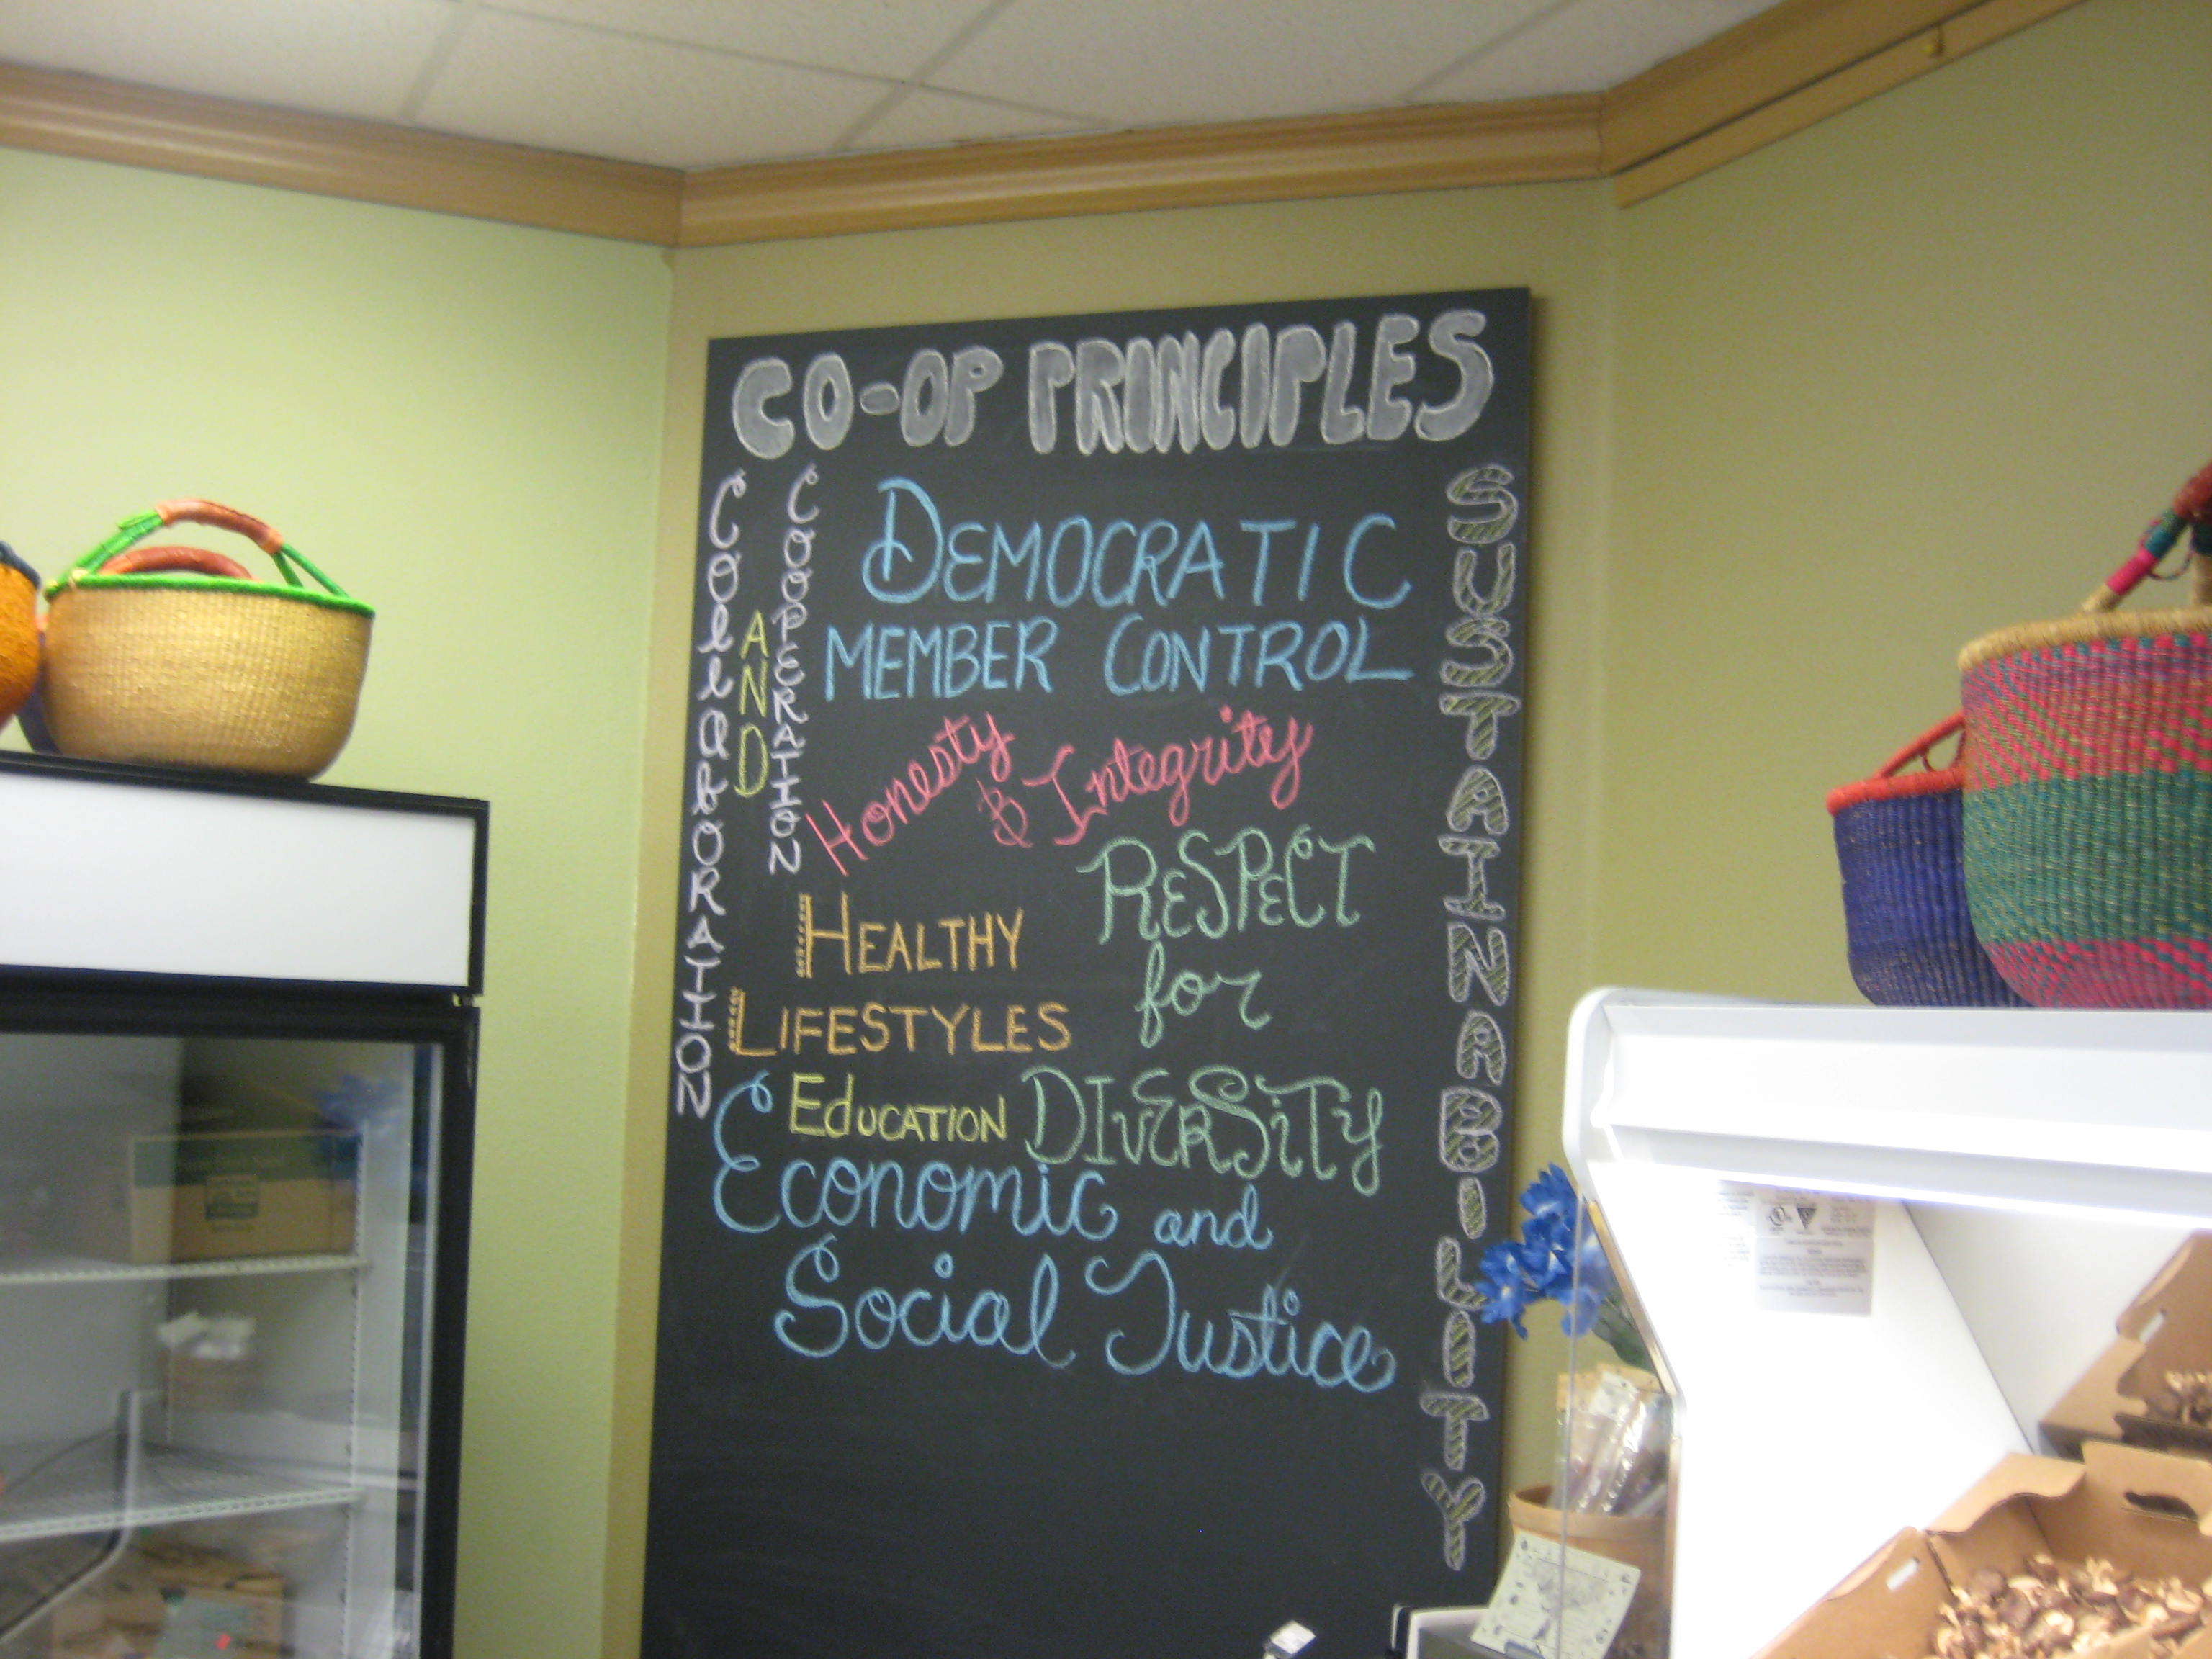 CO-OP PRINCIPLES
COllaBORATION
AND
COOPERATION
DEMOCRATIC
MEMBER CONTROL
Honesty
& Integrity
RESPECT
for
DIVERSiTy
HEALTHY
LIFESTYLES
EdUCATION
Economic and
Social Justice
SUSTAINABILITY